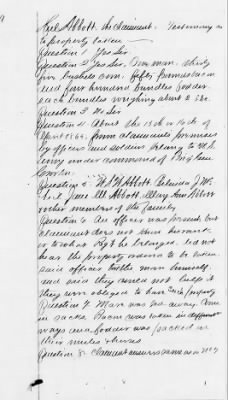 Abbott, the Claimant. Testimony as
to property taken
Question 1 Yes Sir.
Question 2 Yes Sir. One man. thirty
five bushels corn. fifty pounds bacon
and four hundred bundles fodder
each bundles weighing about 2 lbs.
Question 3 No Sir
Question 4 About the 15th or 16th of
April 1864, from claimants premises
by officers and soldiers belong to U.S.
Army under command of Brig Gen

Question 5 Abbott,
Jane Abbott, Mary Ann Abbott
other members of the family
Question 6 An officer was present, but
claimant does not know his rank
or to what Regt he belonged. did not
hear the property ordered to be taken
said officer
and said they could not help it
they were obliged to have such property
Question 7 was
in sacks Bacon was taken in different
ways and fodder was packed on
their mules & horses
Question 8 Claimant